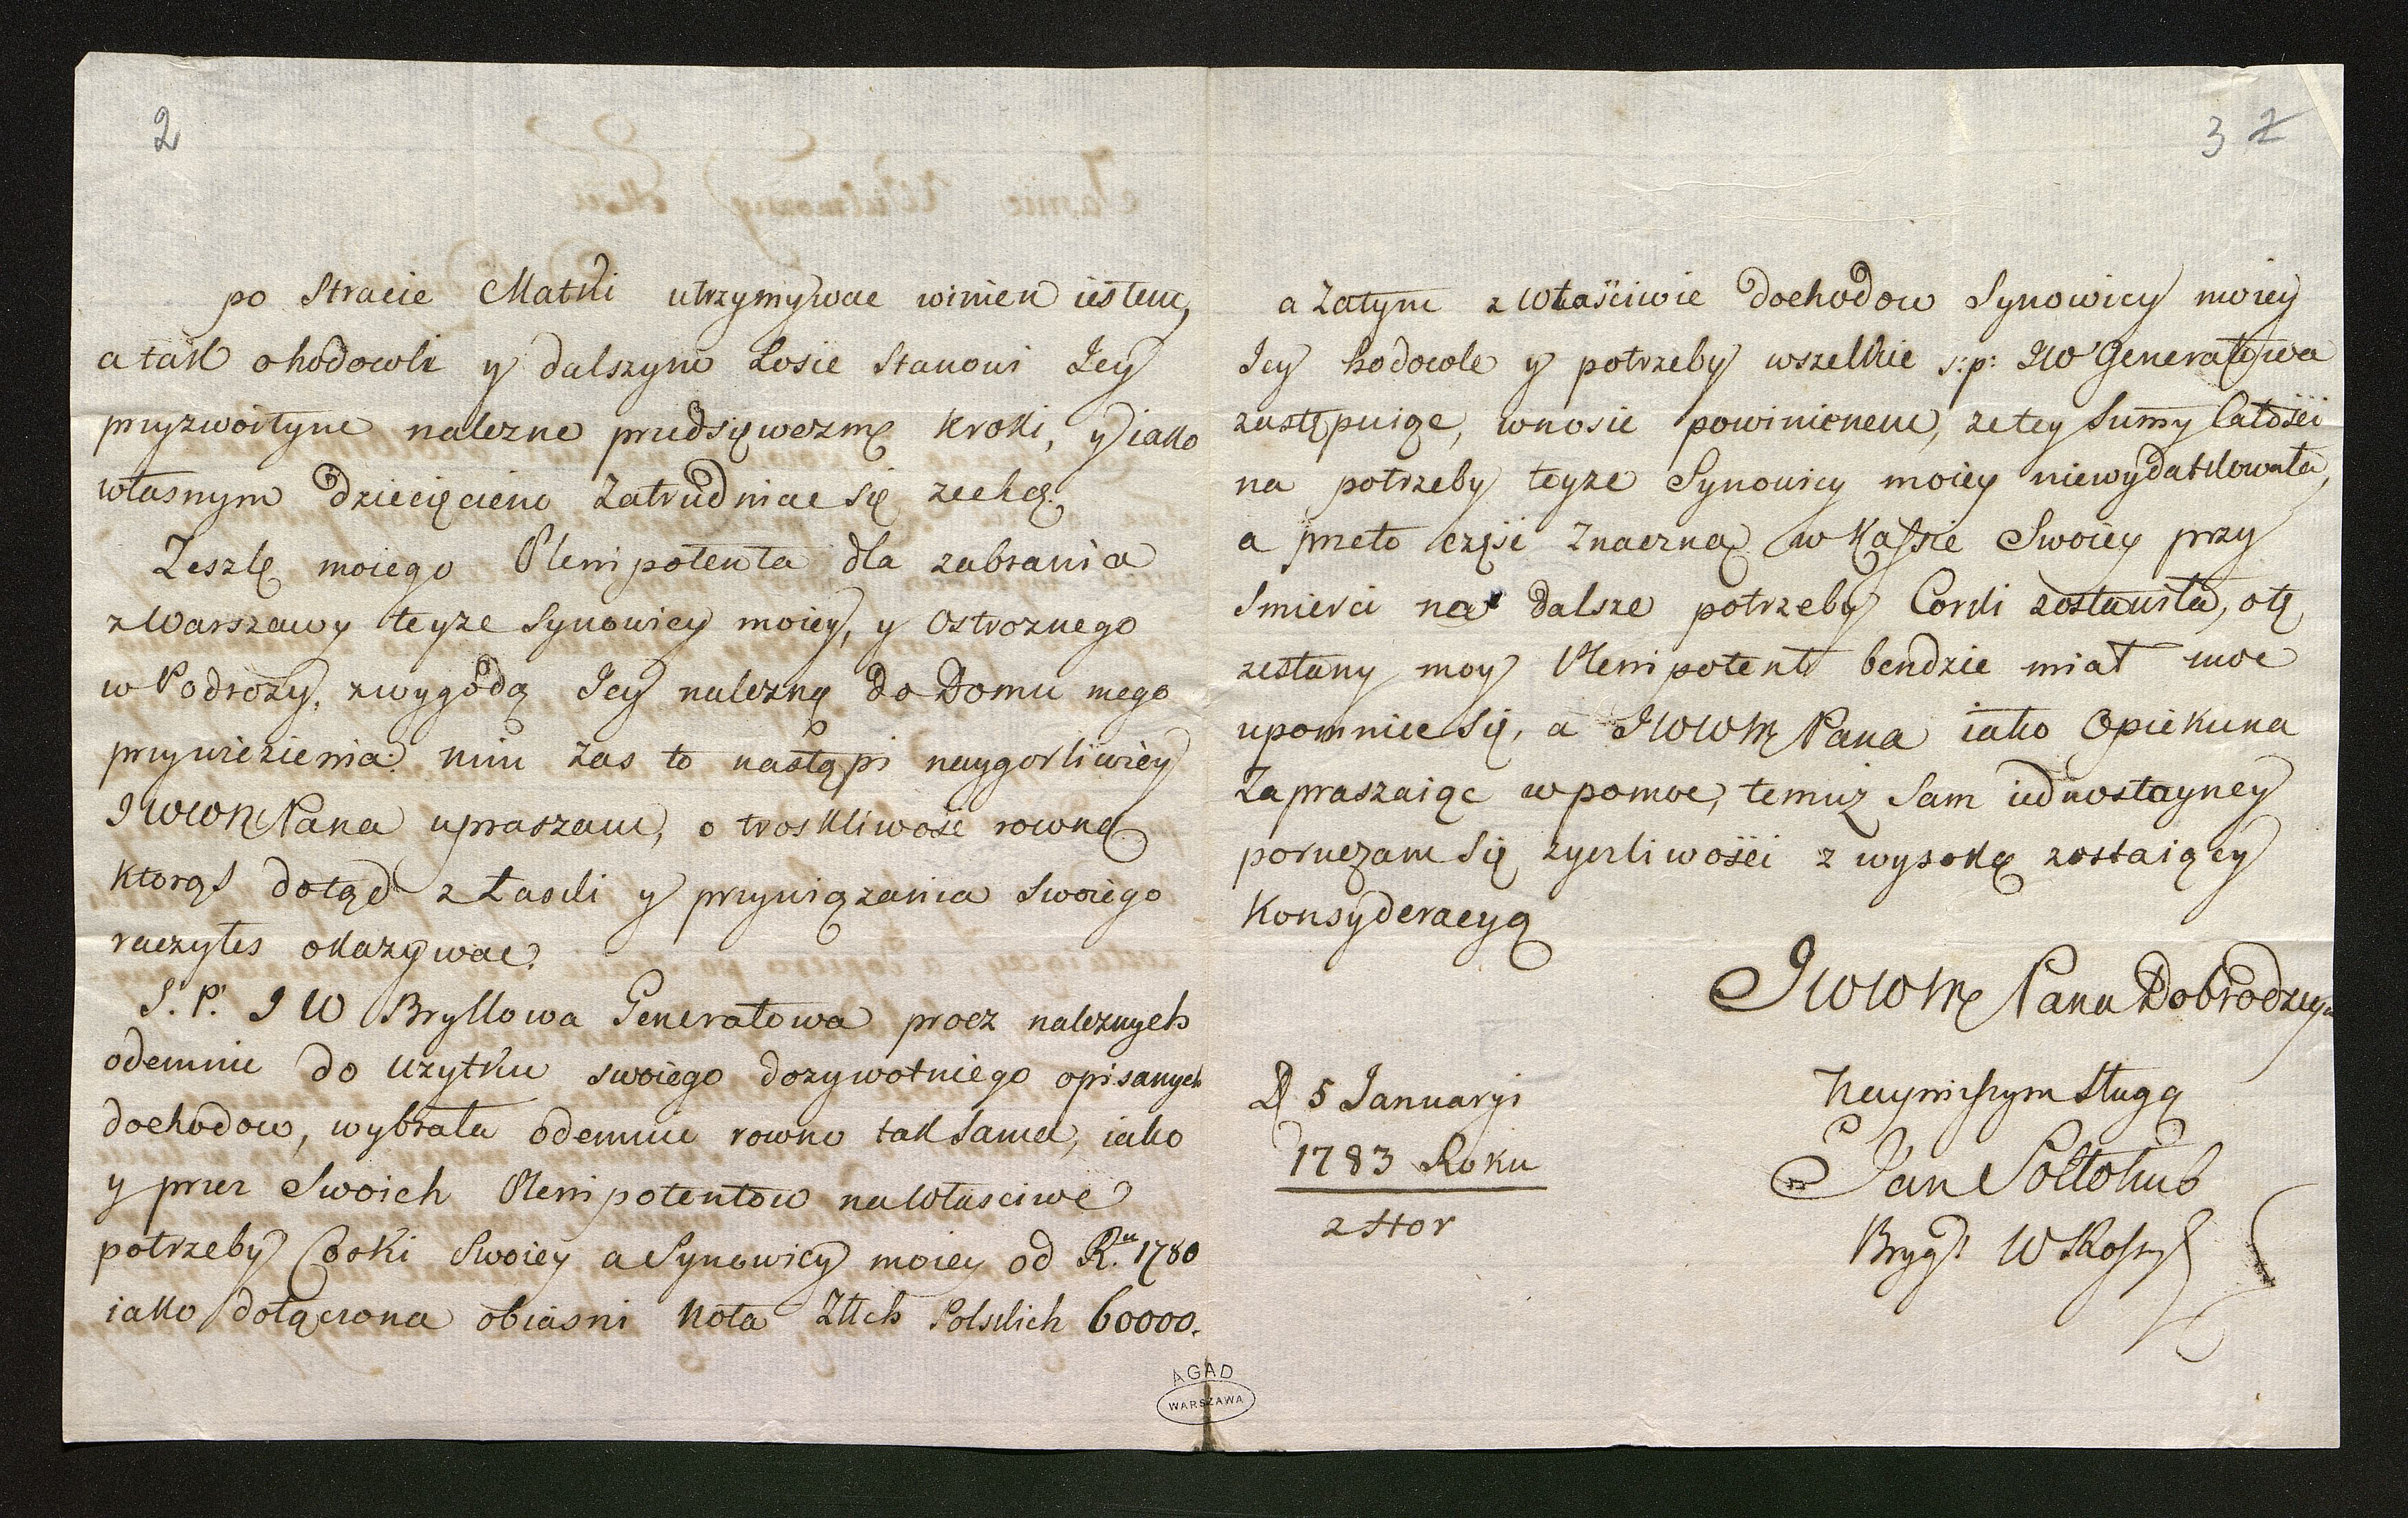 2
po Stracie Matki utrzymywac winien iestem,
a tak o hodowli y dalszym Losie Stanowi Jey
przyzwoitym nalezne przedsięwezmę kroki, y iako
własnym dziecięciem zatrudniac się zechcę.
Zeszlę moiego Plenipotenta dla zabrania
z Warszawy teyze Synowicy moiey, y Ostroznego
w Podrozy, z wygodą Jey nalezną do Domu mego
przywiezienia. nim zas to nastąpi naygorliwiey
JWWM Pana upraszam, o troskliwość rowną
ktorąs dotąd z Łaski y przywiązania Swoiego
raczyłes okazywac.
S. P. JW Bryllowa Generałowa procz naleznych
odemnie do uzytku swoiego dozywotniego opisanych
dochodow, wybrała odemnie rowno tak sama, iako
y przez Swoich Plenipotentow na własciwe
potrzeby Corki Swoiey a Synowicy moiey od Ru. 1780
iako dołączona obiasni Nota Złłch Polskich 60000.
AGAD
WARSZAWA
3 2
a zatym z właściwie dochodow Synowicy moiey
Jey hodowle y potrzeby wszelkie s: p: JW Generałowa
zastępuiąc, wnosic powinienem, ze tey Sumy Całości
na potrzeby teyze Synowicy moiey niewydatkowała,
a przeto część znaczną w Kassie Swoiey przy
Smierci na dalsze potrzeby Corki zostawiła, o tę
zesłany moy Plenipotent bendzie miał moc
upomniec się, a JWWM Pana iako Opiekuna
Zapraszaiąc w pomoc, temuż Sam iednostayney
poruczam się zyczliwości z wysoką zostaiący
Konsyderacyą
JWWM Pana Dobrodzieja
Nayniższym Sługą
Jan Sołłohub
Bryg: W Rossy:
D 5 Januaryi
1783 Roku
z Hor